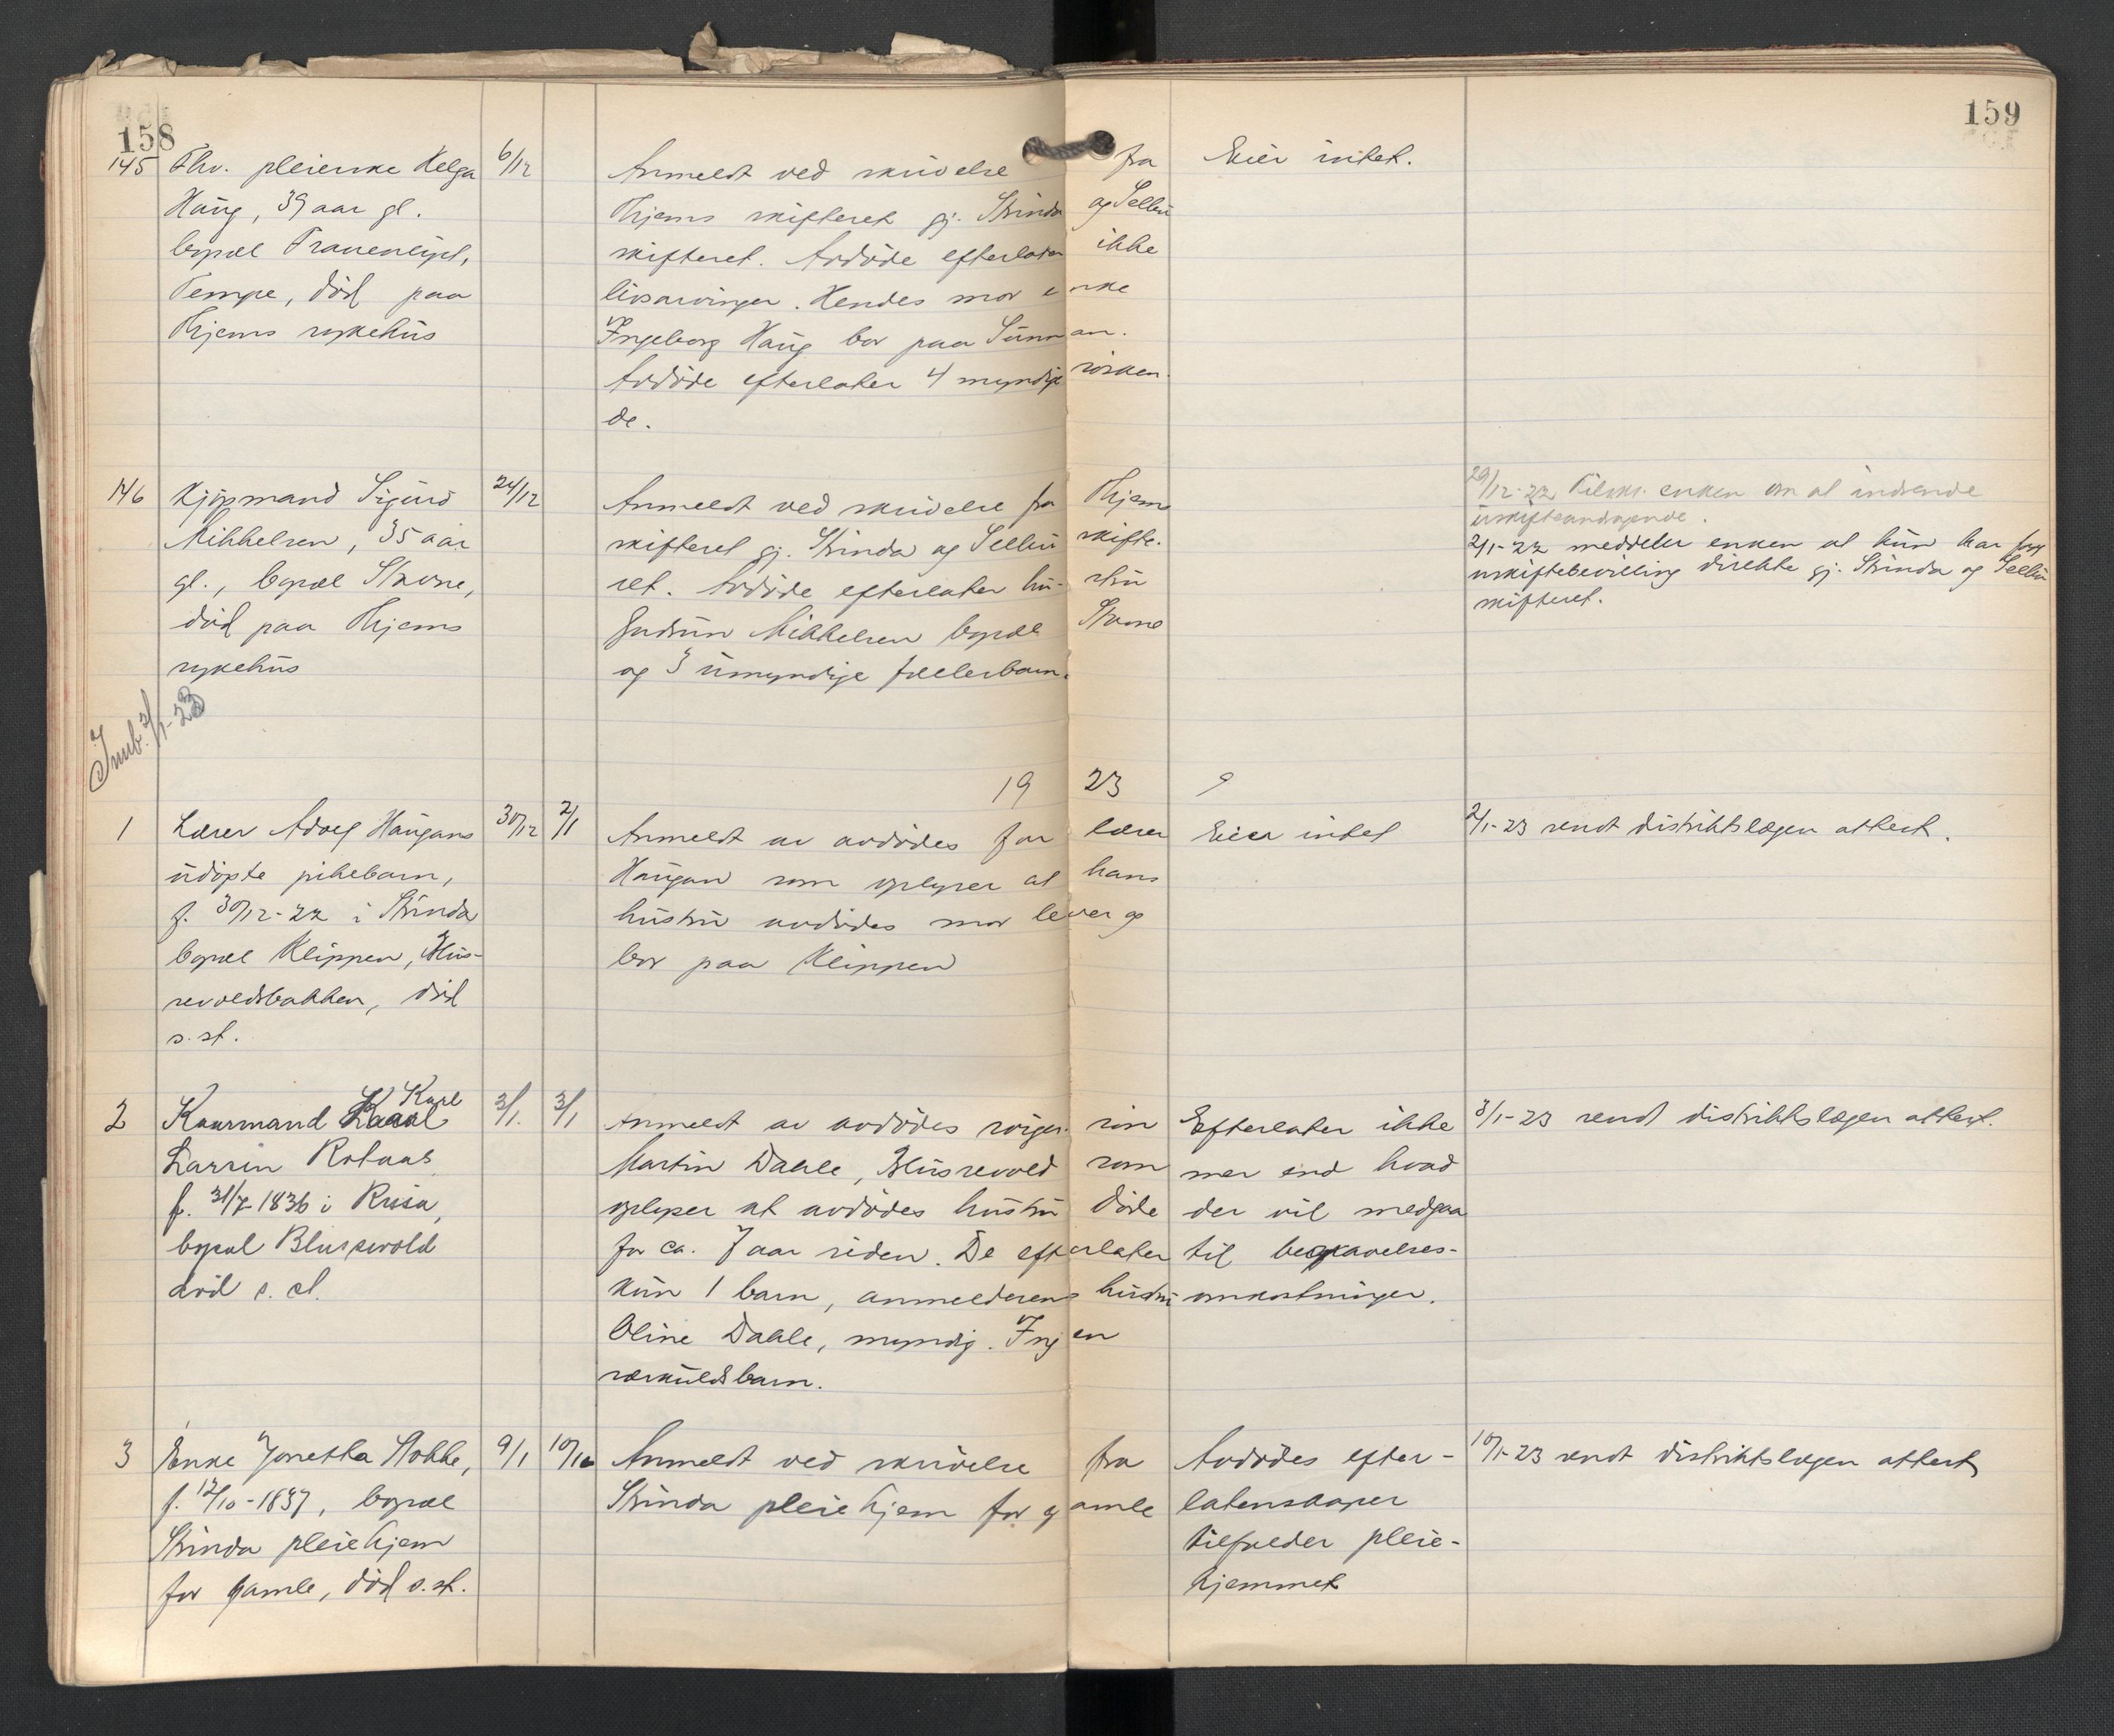 158
159
145 Fhv. pleierske Helga 6/12 Anmeldt ved skrivelse fra Eier intet.
Haug, 39 aar gl. Thjems skifteret gj. Strinda og Selbu
bopæl Trauenlyst, skifteret. Avdöde efterlater ikke
Tempe, död paa livsarvinger. Hendes mor enke
Thjems sykehus Ingeborg Haug bor paa Sunnan.
Avdöde efterlater 4 myndige søsken
de.
146 Kjöpmand Sigurd 24/12 Anmeldt ved skrivelse fra Thjems 29/12-22 Tilskr. enken om at indsende
Mikkelsen, 35 aar skifteret gj. Strinda og Selbu skifte- uskifteandragende.
gl., bopæl Stavne, ret. Avdöde efterlater hustru 2/1-23 meddeler enken at hun har faat
död paa Thjems Gudrun Mikkelsen bopæl Stavne uskiftebevilling direkte gj. Strinda og Selbu
sykehus og 3 umyndige fællesbarn. skifteret.
Innb. 2/1-23
1923
1 Lærer Adolf Haugans 30/12 2/1 Anmeldt av avdödes far lærer Eier intet 2/1-23 sendt distriktslægen attest.
udöpte pikebarn, Haugan som oplyser at hans
f. 30/12-22 i Strinda hustru avdödes mor lever og
bopæl Klippen, Blus- bor paa Klippen
sevoldsbakken, död
s. st.
2 Kaarmand Karl 3/1. 3/1 Anmeldt av avdödes svigersön Efterlater ikke 3/1-23 sendt distriktslægen attest.
Larsin Rotaas Martin Dahle, Blussevold som mer end hvad
f. 31/7-1836 i Rissa, oplyser at avdödes hustru döde der vil medgaa
bopæl Blussevold for ca. 7 aar siden. De efterlater til begravelses-
död s. st. kun 1 barn, anmelderens hustru omkostninger.
Oline Dahle, myndig. Ingen
særkuldsbarn.
3 Enke Jonetta Stokke, 9/1 10/1 Anmeldt ved skrivelse fra Avdödes efter- 10/1-23 sendt distriktslægen attest
f. 12/10-1837, bopæl Strinda pleiehjem for gamle latenskaper
Strinda pleiehjem tilfalder pleie-
for gamle, död s. st. hjemmet